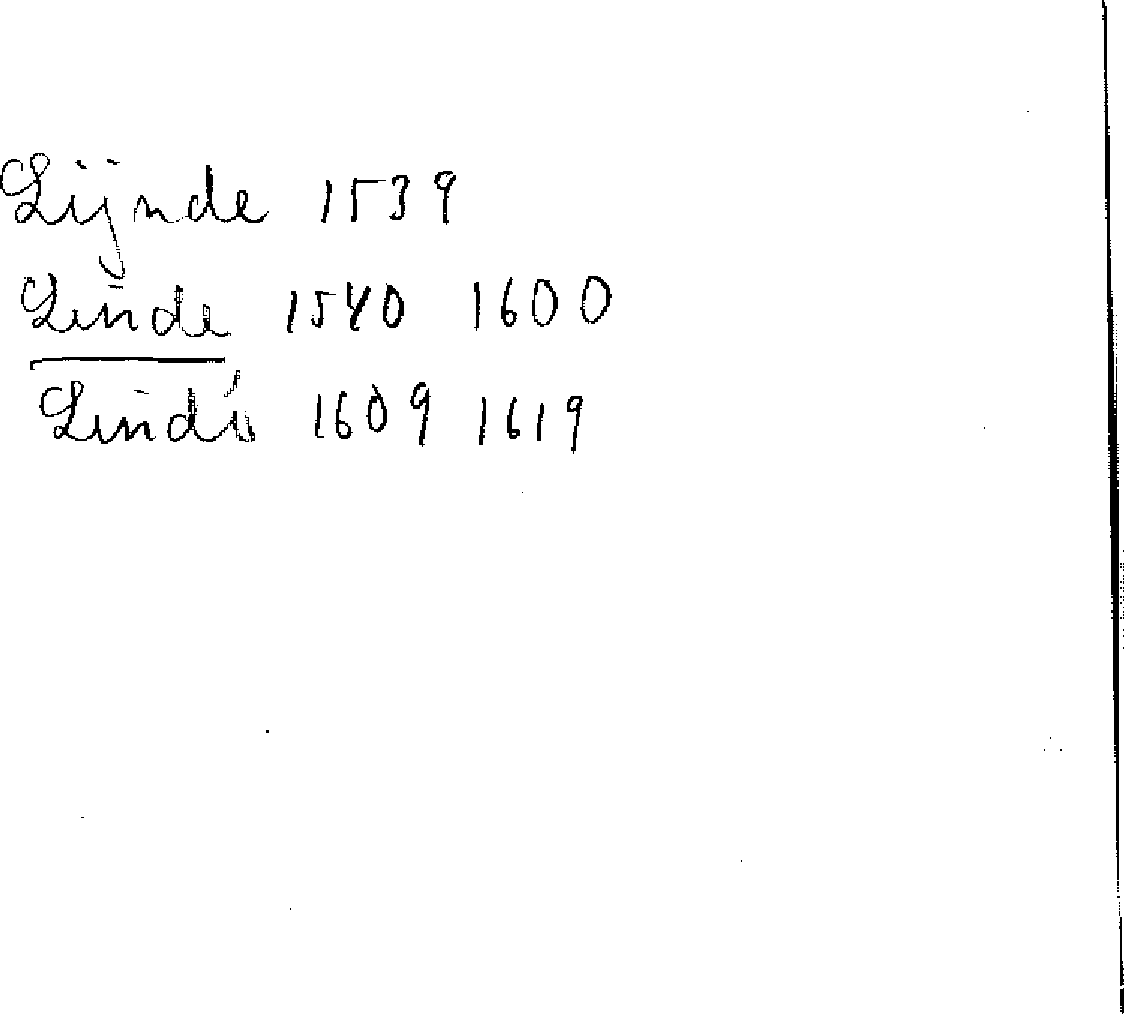 Lijnde 1539
Linde 1540 1600
1609 1619